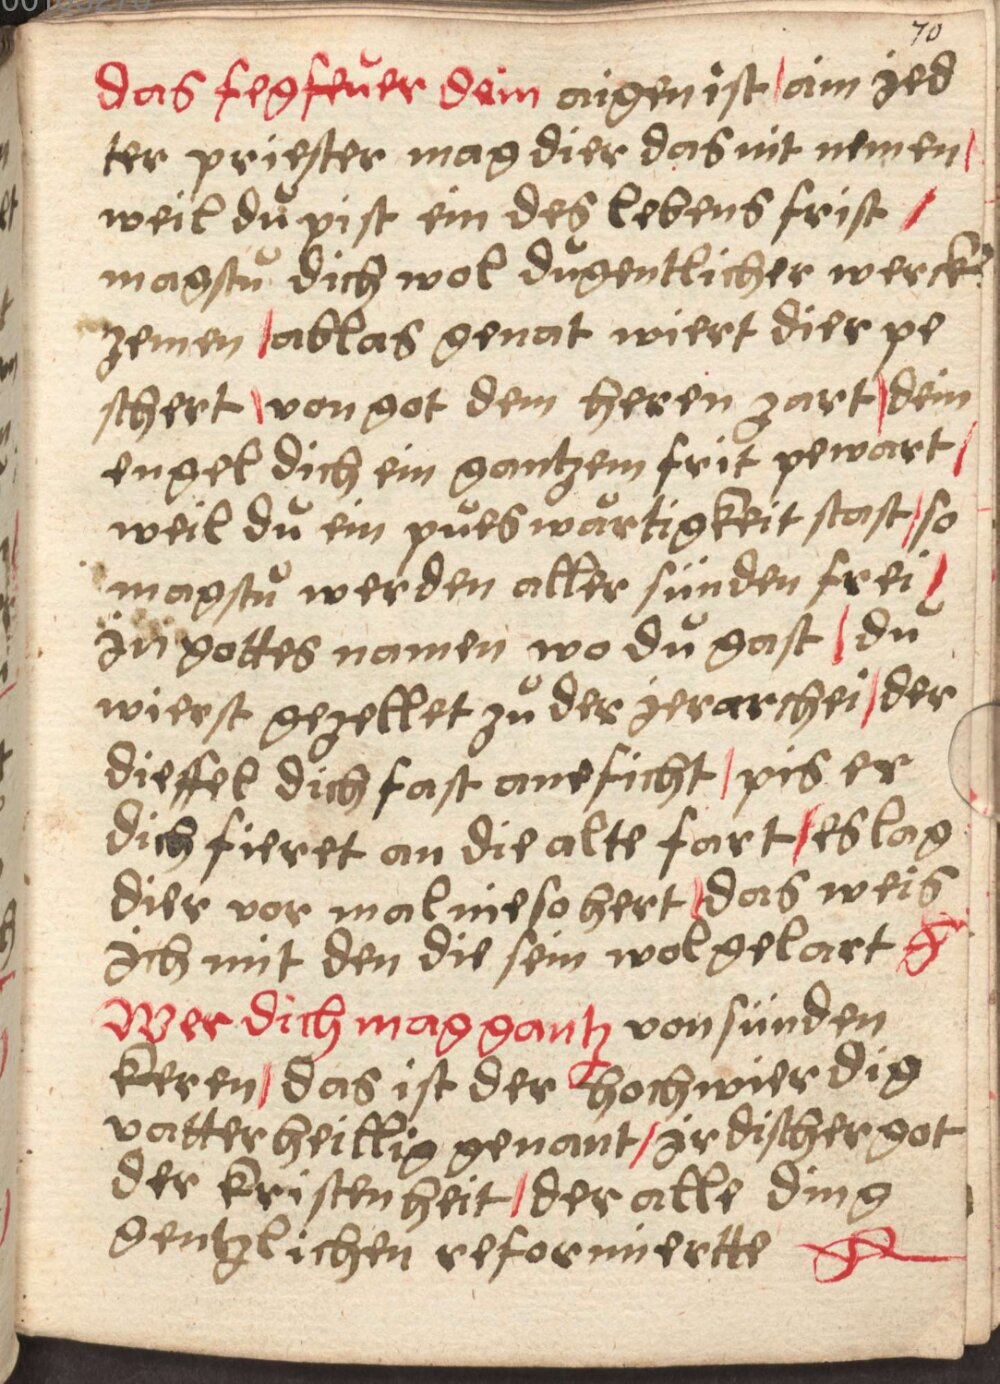 70
das fegfeuer dein aigen ist / ain jed
ter priester mag dier das nit nemen /
weil dů pist ein des lebens frist /
magstů dich wol dugentlicher werck
zemen / ablas genat wiert dier pe
schert / von got dem heren zart / dein
engel dich ein gantzem frit pewart /
weil dů ein pues wartigkeit stast / so
magstů werden aller sünden frei /
in gottes namen wo dů gast / dů
wierst gezellet zů der jerarchei / der
dieffel dich fast aneficht / pis er
dich fieret an die alte fart / es lag
dier vor mal nie so hert / das weis
ich mit den die sein wol gelart
Wer dich mag gantz von sünden
keren / das ist der hochwierdig
vatter heillig genant / irdischer got
der kristenheit / der alle ding
gentzlichen reformiertte